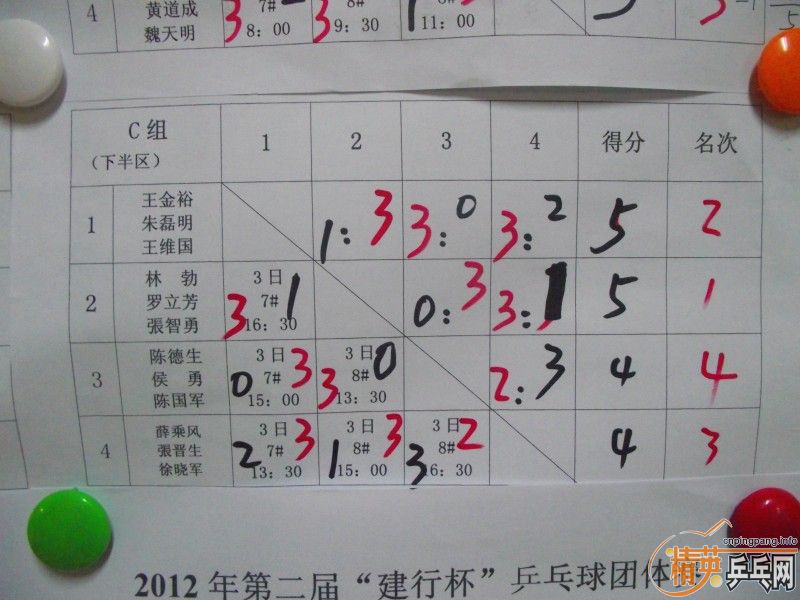 4 黄道成 3 7# 3 9# 1 8# 3 5
魏天明 8：00 9：30 11：00
C 组 1 2 3 4 得分 名次
（下半区）
1 王金裕 1：3 3：0 3：2 5 2
朱磊明
王维国
2 林 勃 3日 0：3 3：1 5 1
罗立芳 3 7# 1
張智勇 16：30
3 陈德生 3日 3日 2：3 4 4
侯 勇 0 7# 3 3 8# 0
陈国军 15：00 13：30
4 薛乘风 3日 3日 3日 4 3
張晋生 2 7# 3 1 8# 3 3 8# 2
徐晓军 13：30 15：00 16：30
2012 年第二届“建行杯”乒乓球团体
cnpingpang.info
精英乒乓网